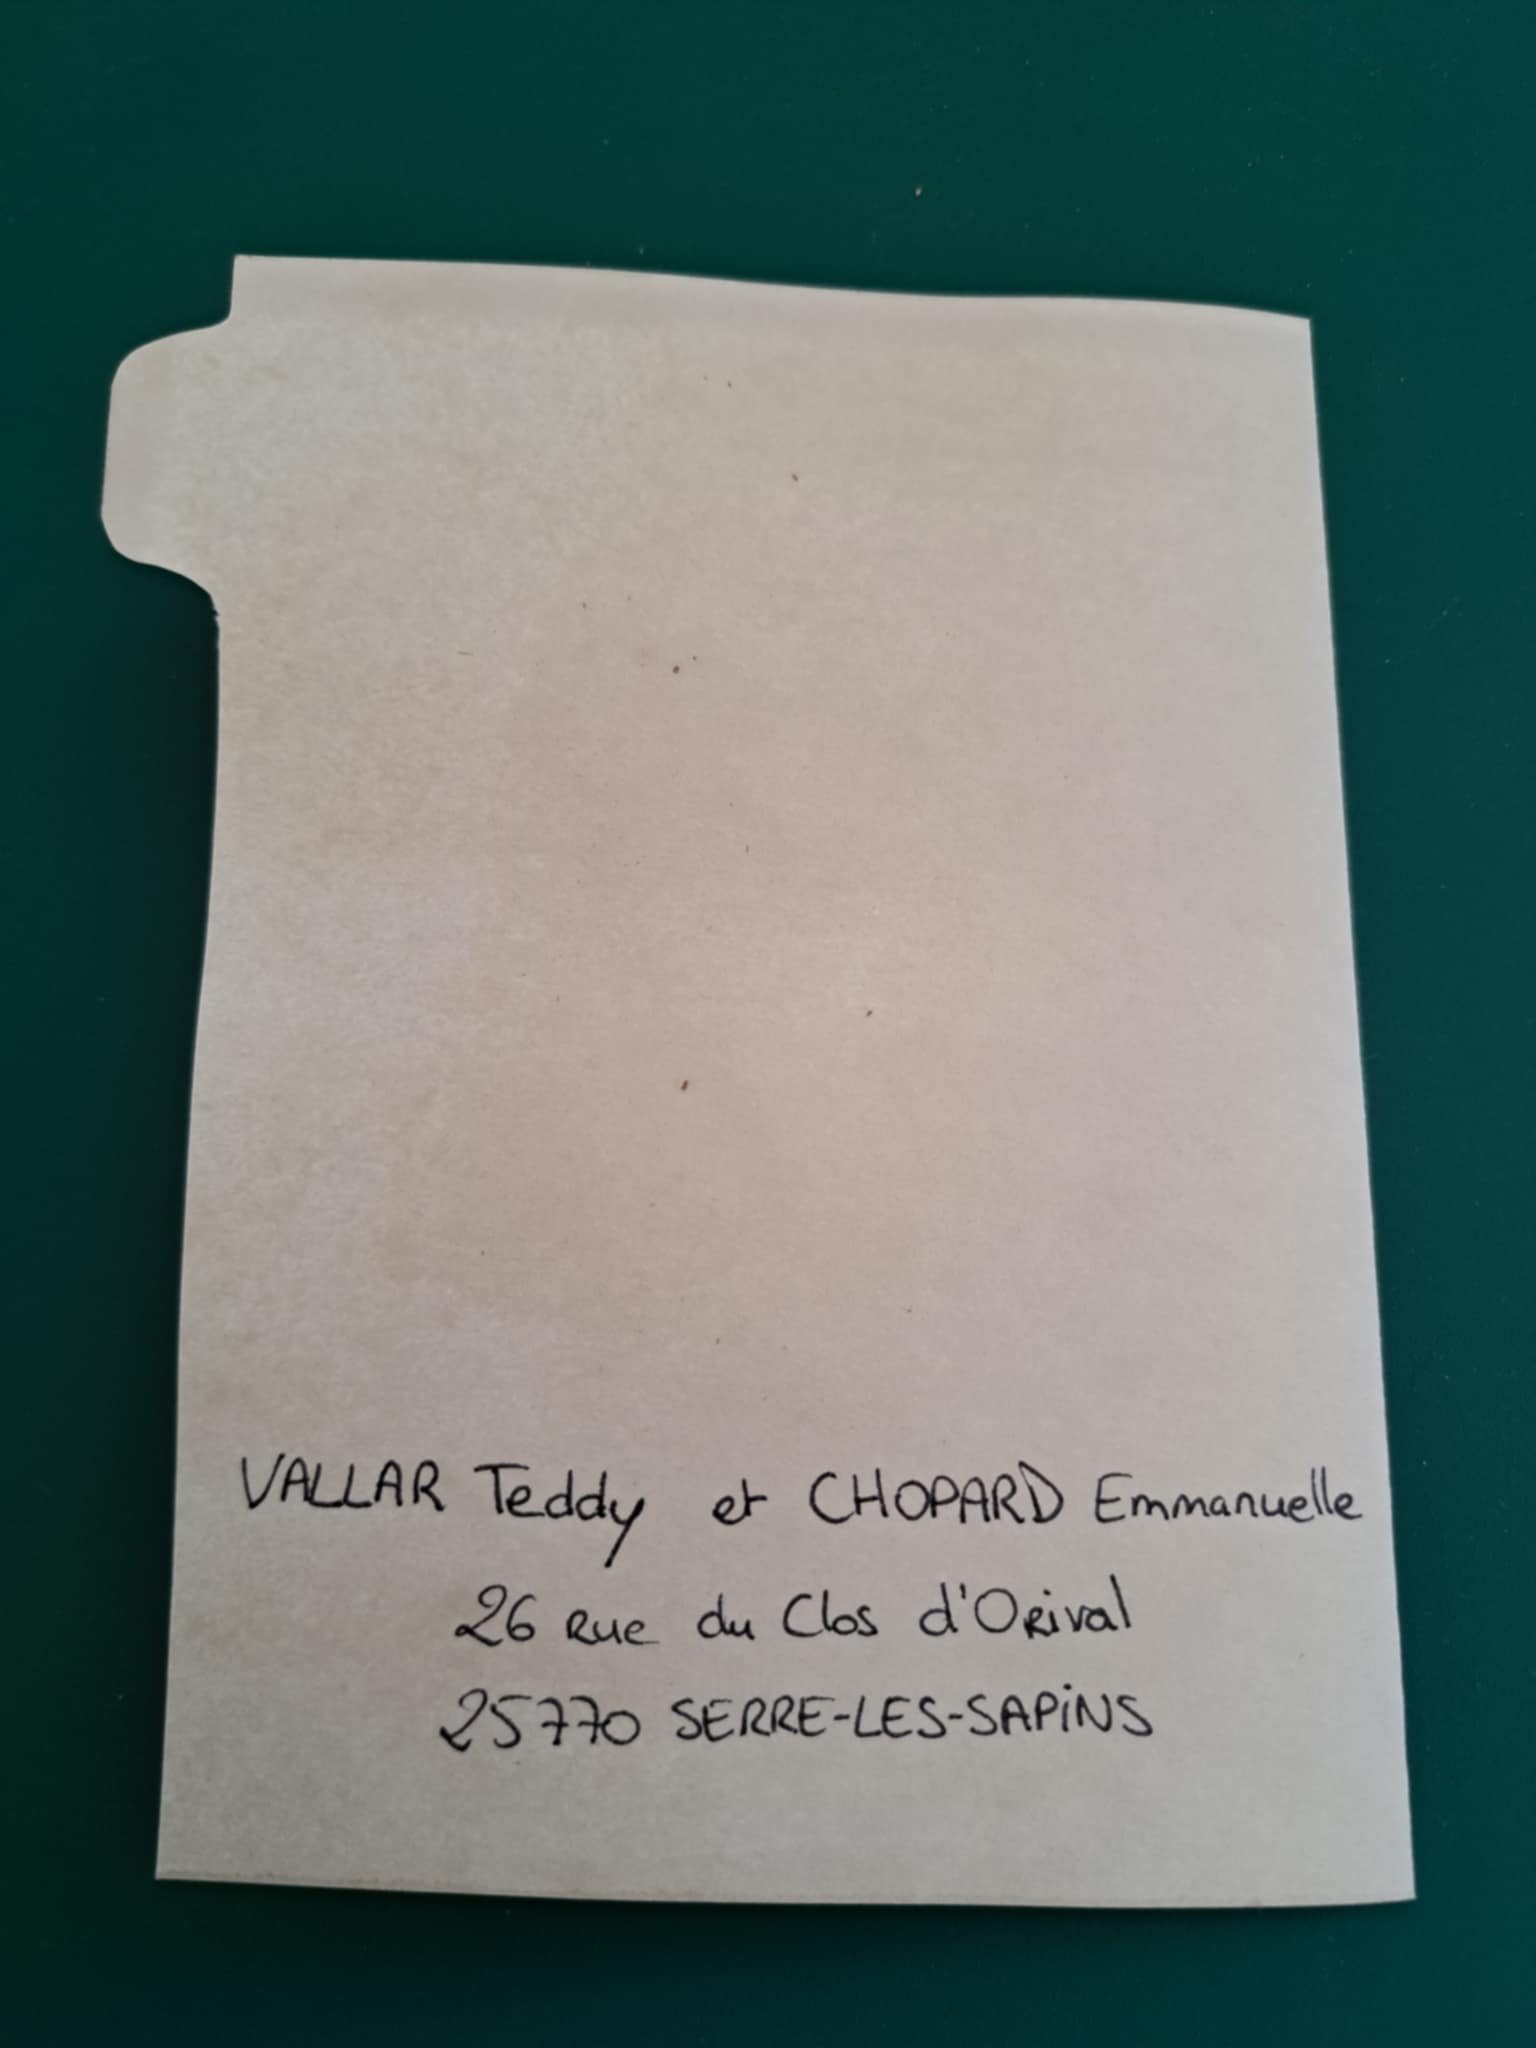 VALLAR Teddy et CHOPARD Emmanuelle
26 Rue du Clos d'Orival
25770 SERRE-LES-SAPiNS